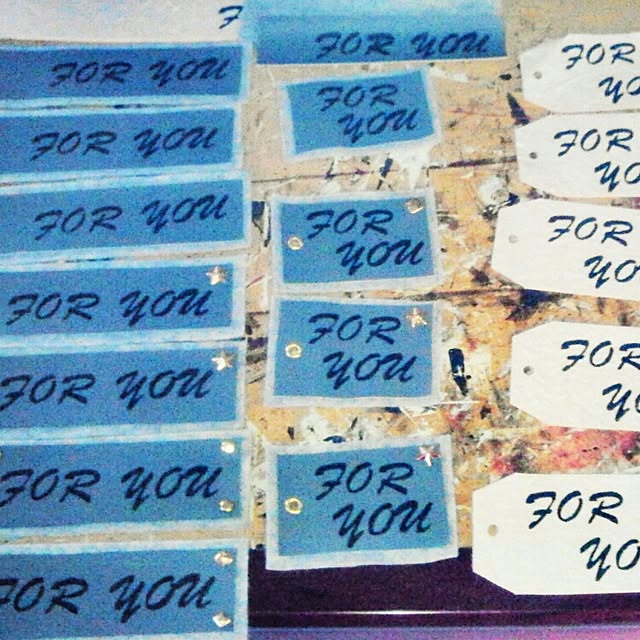 F
FOR YOU
FOR YOU
FOR YOU
FOR YOU
FOR YOU
FOR YOU
FOR YOU
FOR YOU
FOR
YOU
FOR
YOU
FOR
YOU
FOR
YOU
FOR
YO
FOR
YO
FOR
YO
FOR
YO
FOR
YO